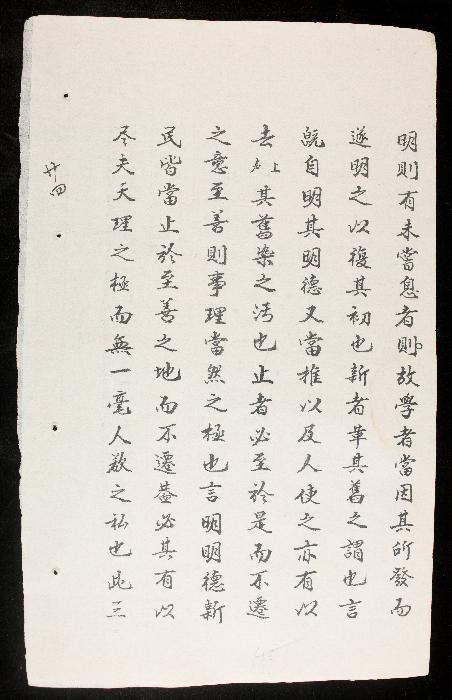 明則有未嘗息者則故學者當因其所發而
遂明之以復其初也新者革其舊之謂也言
既自明其明德又當推以及人使之亦有以
去上声其舊染之污也止者必至於是而不遷
之意至善則事理當然之極也言明明德新
民皆當止於至善之地而不遷蓋必其有以
尽夫天理之極而無一毫人欲之私也此三
廿四